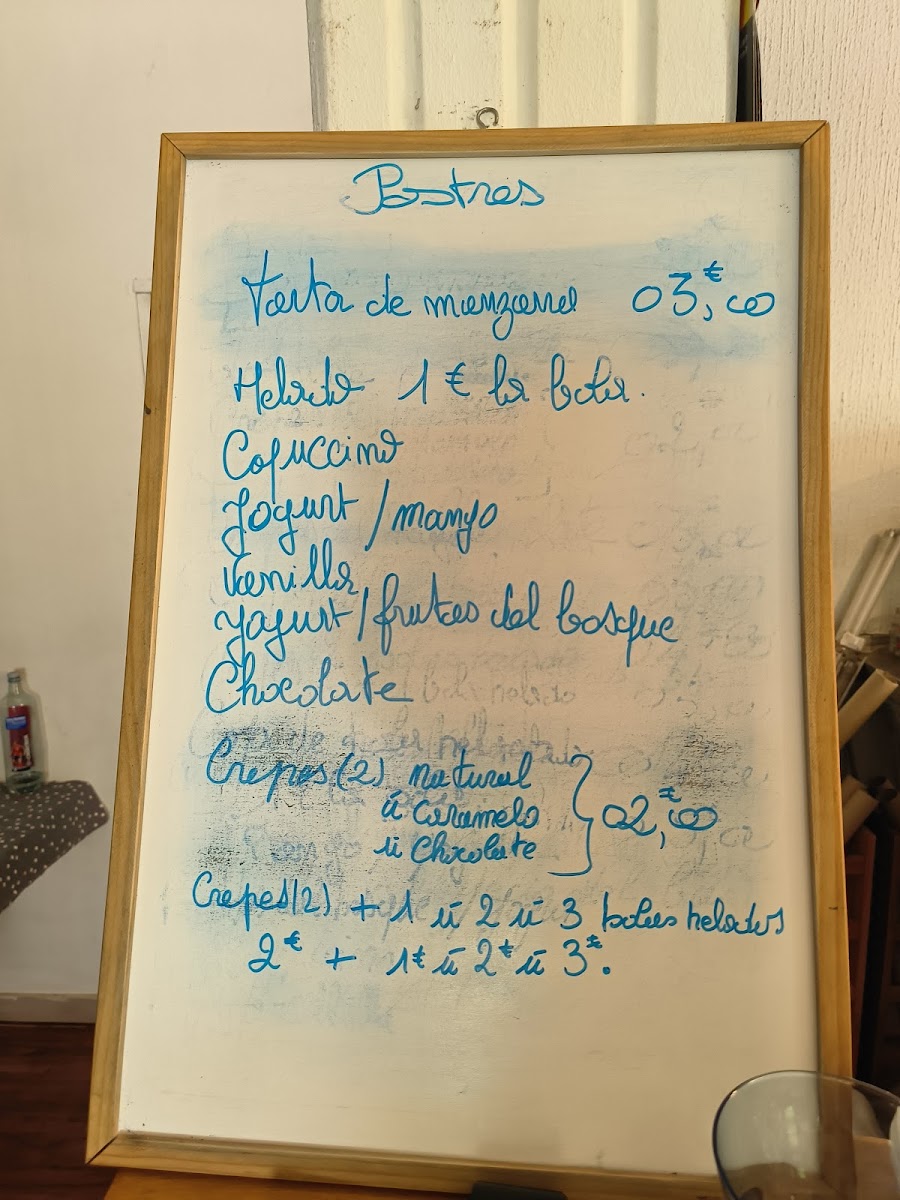 Postres
Tarta de manzana 03,€00
Helado 1 € la bola.
Capuccino
Yogurt / mango
Vanilla
Yogurt / frutas del bosque
Chocolate
Crepes (2) natural
ú Caramelo
ú Chocolate
02,€00
Crepes (2) + 1 ú 2 ú 3 bolas helados
2€ + 1€ ú 2€ ú 3€.